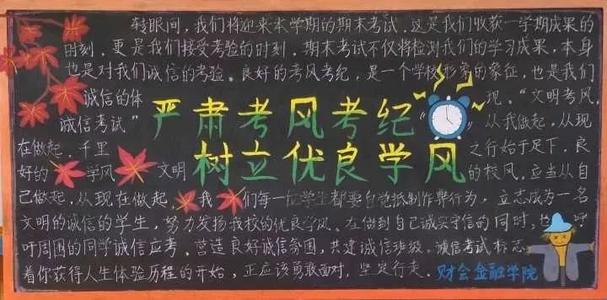 转眼间，我们将迎来本学期的期末考试。这是我们收获一学期成果的
时刻，更是我们接受考验的时刻，期末考试不仅将检测我们的学习成果，本身
也是对我们诚信的考验。良好的考风考纪，是一个学校形象的象征，也是我们
诚信的体现。“文明考风，
诚信考试”从我做起，从现
严肃考风考纪
树立优良学风
在做起，千里之行始于足下，良
好的学风文明的校风，应当从自
己做起，从现在做起，我们每一位学生都要自觉抵制作弊行为，立志成为一名
文明的诚信的学生，努力发扬我校的优良学风。在做到自己诚实守信的同时，也呼
吁周围的同学诚信应考。营造良好诚信氛围，共建诚信班级。诚信考试标志
着你获得人生体验历程的开始，正应该勇敢面对，坚定行走。
财会金融学院